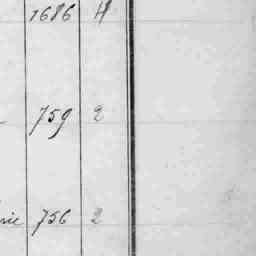 1686 H
759 2
756 2